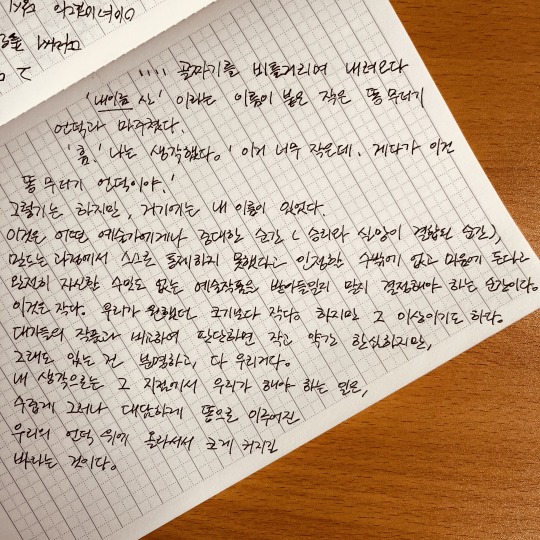 어떤 예술가에게나 중대한 순간 (승리와 실망이 결합된 순간),
'''' 골짜기를 비틀거리며 내려오다
'내이름 산' 이라는 이름이 붙은 작은 똥 무더기
언덕과 마주쳤다.
'흠.' 나는 생각했다. '이거 너무 작은데. 게다가 이건
똥 무더기 언덕이야.'
그렇기는 하지만, 거기에는 내 이름이 있었다.
이것은 어떤 예술가에게나 중대한 순간 (승리와 실망이 결합된 순간),
만드는 과정에서 스스로 통제하지 못했다고 인정할 수밖에 없고 마음에 든다고
완전히 자신할 수만도 없는 예술작품을 받아들일지 말지 결정해야 하는 순간이다.
이것은 작다. 우리가 원했던 크기보다 작다. 하지만 그 이상이기도 하다.
대가들의 작품과 비교하여 판단하면 작고 약간 한심하지만,
그래도 있는 건 분명하고, 다 우리거다.
내 생각으로는 그 지점에서 우리가 해야 하는 일은,
수줍게 그러나 대담하게 똥으로 이루어진
우리의 언덕 위에 올라서서 크게 커지길
바라는 것이다.